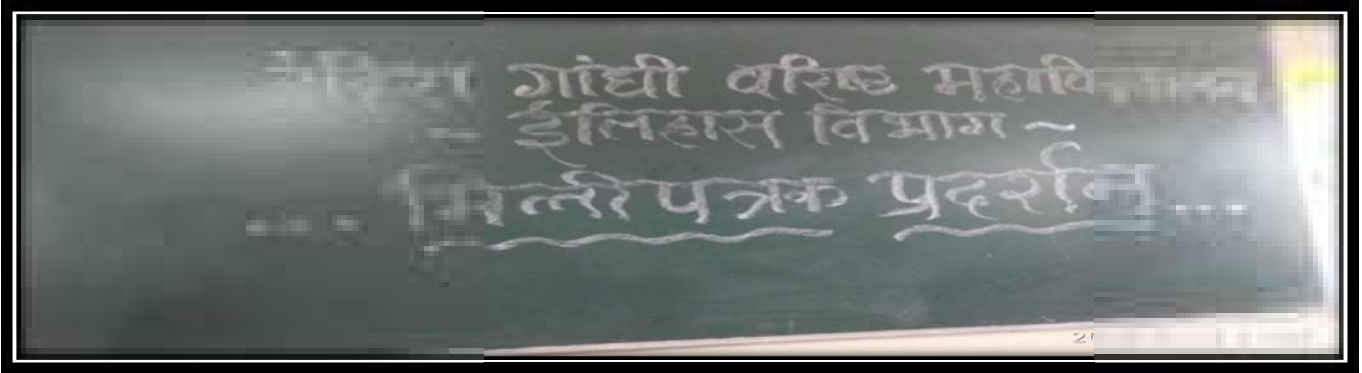 गांधी वरिष्ठ महाविद्यालय
- इतिहास विभाग -
... भित्तीपत्रक प्रदर्शन ...